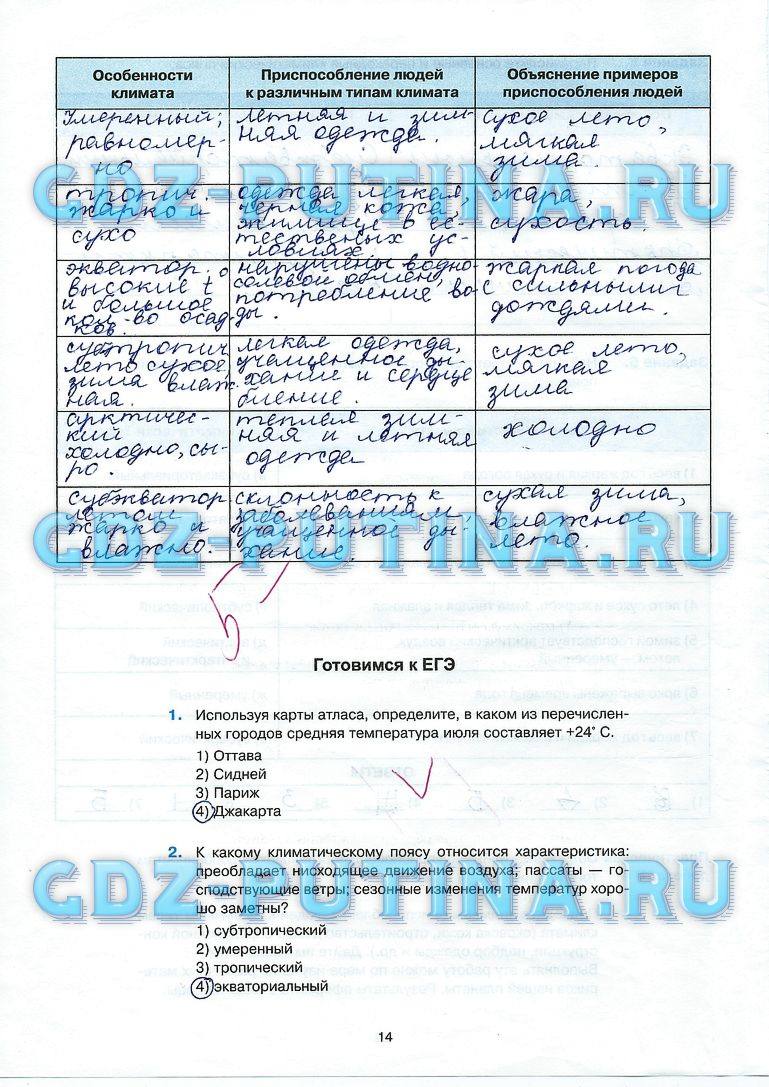 Особенности климата
Приспособление людей к различным типам климата
Объяснение примеров приспособления людей
Умеренный;
равномер-
но
летняя и зим-
няя одежда.
сухое лето,
мягкая
зима.
тропич.
жарко и
сухо
одежда легкая,
черная кожа
жилище в ес-
тественых ус-
ловиях
жара,
сухость.
экватор.
высокие t
и большое
кол-во осад-
ков.
нарушены водно-
солевой обмен,
потребление во-
ды.
жаркая погода
с сильными
дождями.
субтропич
лето сухое,
зима влаж
ная.
легкая одежда,
учащенное ды-
хание и сердце
биение.
сухое лето,
мягкая
зима
арктичес-
кий
холодно, сы-
ро.
теплая зим-
няя и летняя
одежда
холодно
субэкватор
летом
жарко и
влажно.
склоность к
заболеваниям,
учащенное ды-
хание.
сухая зима,
влажное
лето.
GDZ-PUTINA.RU
GDZ-PUTINA.RU
GDZ-PUTINA.RU
5-
Готовимся к ЕГЭ
1. Используя карты атласа, определите, в каком из перечислен-
ных городов средняя температура июля составляет +24° С.
1) Оттава
2) Сидней
3) Париж
4) Джакарта
2. К какому климатическому поясу относится характеристика:
преобладает нисходящее движение воздуха; пассаты — го-
сподствующие ветры; сезонные изменения температур хоро-
шо заметны?
GDZ-PUTINA.RU
1) субтропический
2) умеренный
3) тропический
4) экваториальный
14